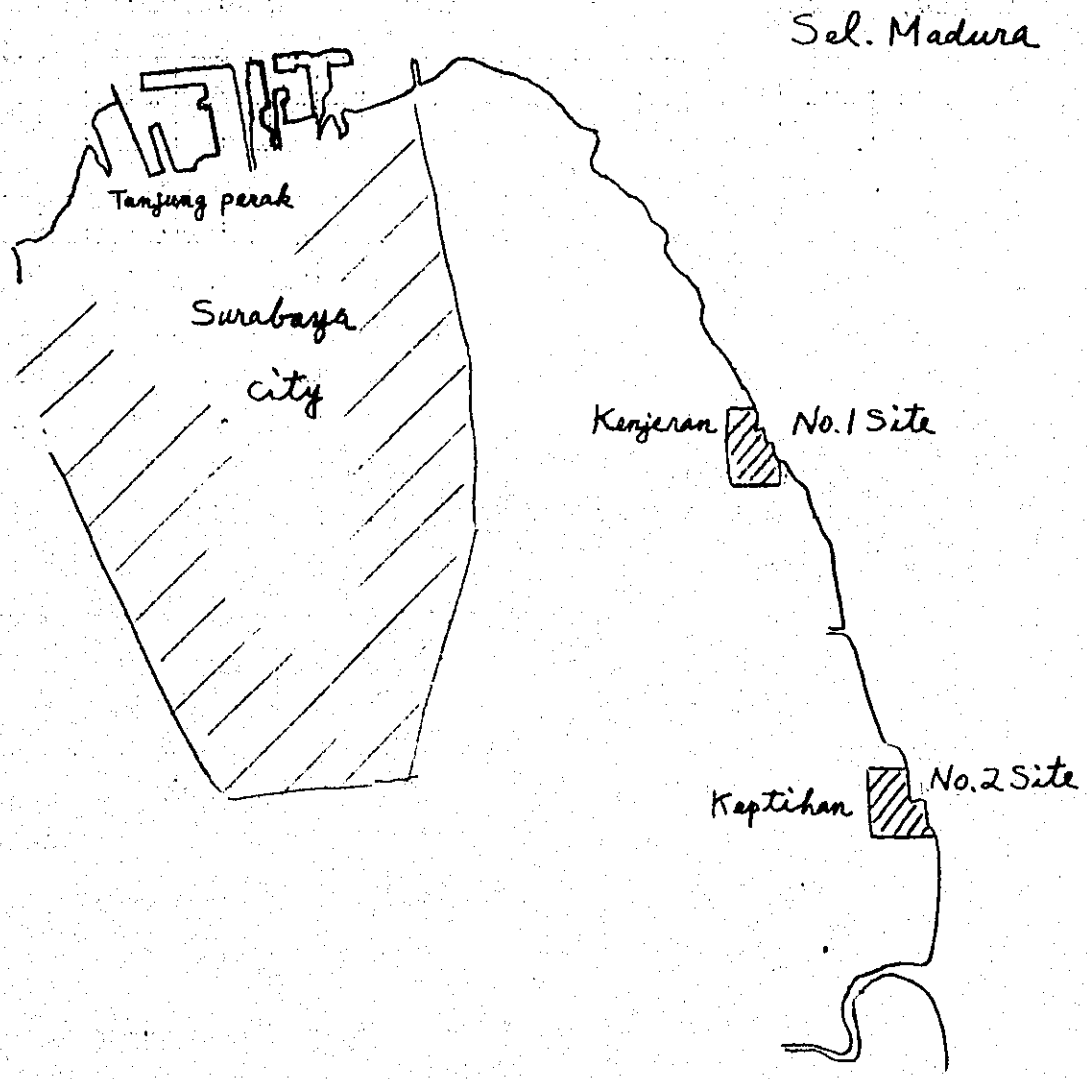 Sel. Madura
Tanjung perak
Surabaya
city
Kenjeran
No.1 Site
Keptihan
No.2 Site